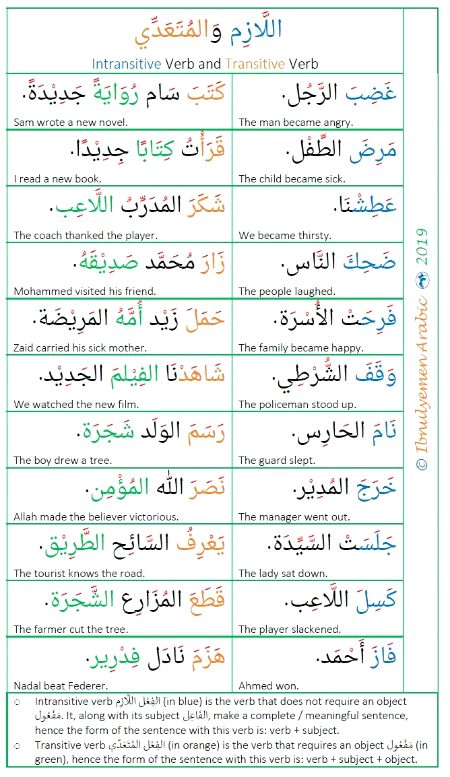 اللَّازِم وَالمُتَعَدِّي
Intransitive Verb and Transitive Verb
غَضِبَ الرَّجُل.
The man became angry.
كَتَبَ سَام رُوَايَةً جَدِيْدَةً.
Sam wrote a new novel.
مَرِضَ الطِّفْل.
The child became sick.
قَرَأْتُ كِتَابًا جِدِيْدًا.
I read a new book.
عَطِشْنَا.
We became thirsty.
شَكَرَ المُدَرِّبُ اللَّاعِب.
The coach thanked the player.
ضَحِكَ النَّاس.
The people laughed.
زَارَ مُحَمَّد صَدِيْقَهُ.
Mohammed visited his friend.
فَرِحَتْ الأُسْرَة.
The family became happy.
حَمَلَ زَيْد أُمَّهُ المَرِيْضَة.
Zaid carried his sick mother.
وَقَفَ الشُّرْطِي.
The policeman stood up.
شَاهَدْنَا الفِيْلمَ الجَدِيْد.
We watched the new film.
نَامَ الحَارِس.
The guard slept.
رَسَمَ الوَلَد شَجَرَة.
The boy drew a tree.
خَرَجَ المُدِيْر.
The manager went out.
نَصَرَ اللّٰه المُؤْمِن.
Allah made the believer victorious.
جَلَسَتْ السَّيِّدَة.
The lady sat down.
يَعْرِفُ السَّائِح الطَّرِيْق.
The tourist knows the road.
كَسِلَ اللَّاعِب.
The player slackened.
قَطَعَ المُزَارِع الشَّجَرَة.
The farmer cut the tree.
فَازَ أَحْمَد.
Ahmed won.
هَزَمَ نَادَل فِدْرِير.
Nadal beat Federer.
o Intransitive verb الفِعْل اللَّازِم (in blue) is the verb that does not require an object
مَفْعُول. It, along with its subject الفَاعِل, make a complete / meaningful sentence,
hence the form of the sentence with this verb is: verb + subject.
o Transitive verb الفِعْل المُتَعَدِّي (in orange) is the verb that requires an object مَفْعُول (in
green), hence the form of the sentence with this verb is: verb + subject + object.
© Ibnulyemen Arabic 2019